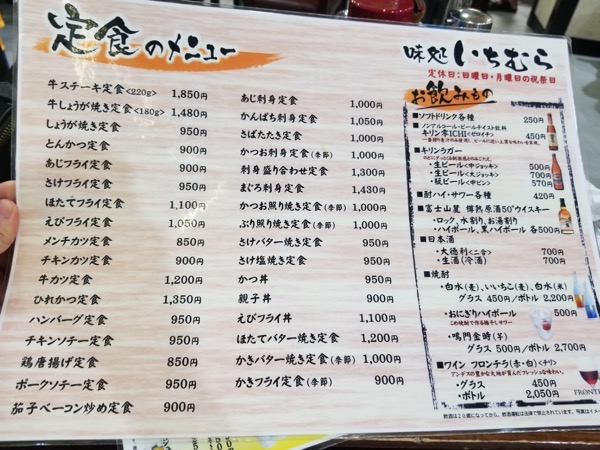 定食のメニュー
牛ステーキ定食<220g> 1,850円
牛しょうが焼き定食<180g> 1,480円
しょうが焼き定食 950円
とんかつ定食 900円
あじフライ定食 900円
さけフライ定食 950円
ほたてフライ定食 1,100円
えびフライ定食 1,050円
メンチカツ定食 850円
チキンカツ定食 900円
牛カツ定食 1,200円
ひれかつ定食 1,350円
ハンバーグ定食 950円
チキンソテー定食 950円
鶏唐揚げ定食 850円
ポークソテー定食 950円
茄子ベーコン炒め定食 900円
あじ刺身定食 1,000円
かんぱち刺身定食 1,050円
さばたたき定食 1,000円
かつお刺身定食(季節) 1,000円
刺身盛り合わせ定食 1,300円
まぐろ刺身定食 1,430円
かつお照り焼き定食(季節) 1,000円
ぶり照り焼き定食(季節) 1,000円
さけバター焼き定食 950円
さけ塩焼き定食 950円
かつ丼 950円
親子丼 900円
えびフライ丼 1,100円
ほたてバター焼き定食 1,200円
かきバター焼き定食(季節) 1,000円
かきフライ定食(季節) 900円
味処 いちむら
定休日:日曜日・月曜日の祝祭日
お飲みもの
■ソフトドリンク各種 250円
■ノンアルコール・ビールテイスト飲料
キリン零ICHI(ゼロイチ) 450円
■キリンラガー
・生ビール<中ジョッキ> 500円
・生ビール<大ジョッキ> 700円
・瓶ビール<中ビン> 570円
■酎ハイ・サワー各種 420円
■富士山麓 樽熟原酒50°ウイスキー
・ロック、水割り、お湯割り
・ハイボール、黒ハイボール 各500円
■日本酒
・大徳利<二合> 700円
・生酒(冷酒) 700円
■焼酎
・白水(麦)、いいちこ(麦)、白水(米)
グラス 450円/ボトル 2,200円
・おにぎりハイボール 500円
こめ焼酎で作る梅干しサワー
・鳴門金時(芋)
グラス 500円/ボトル 2,700円
■ワイン フロンテラ(赤・白)<チリ>
アンデスの豊かな大地が育んだフレッシュな味わい。
・グラス 450円
・ボトル 2,050円
FRONTE
飲酒は20歳になってから。飲酒運転は法律で禁止されています。